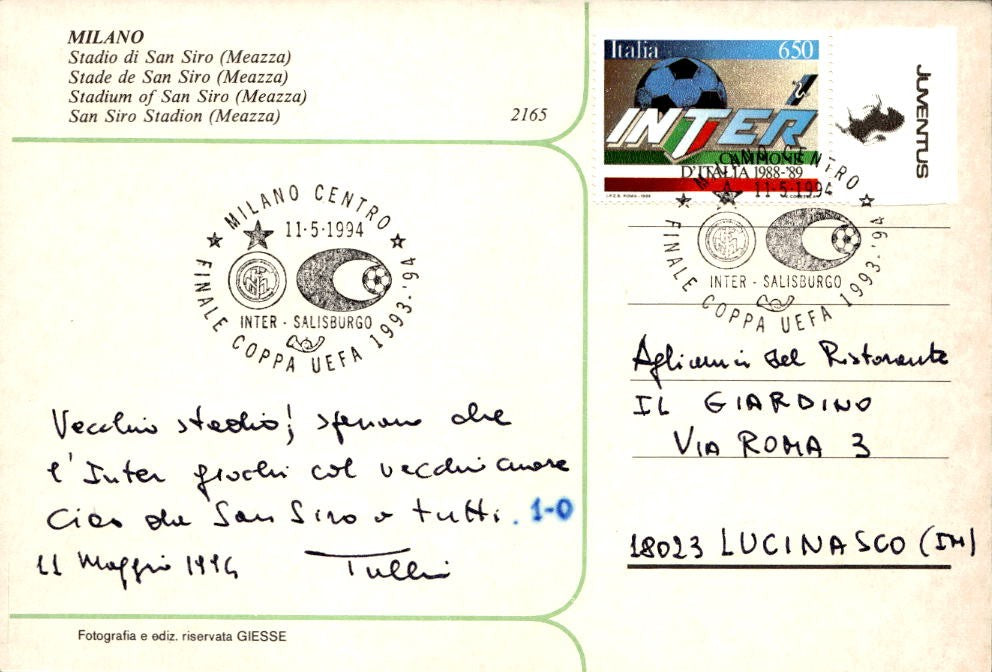 MILANO
Stadio di San Siro (Meazza)
Stade de San Siro (Meazza)
Stadium of San Siro (Meazza)
San Siro Stadion (Meazza)
2165
MILANO CENTRO
11·5·1994
INTER - SALISBURGO
FINALE COPPA UEFA 1993-'94
Vecchio stadio! speriamo che
l'Inter giochi col vecchio cuore
Ciao da San Siro a tutti. 1-0
11 Maggio 1994 Tullio
Fotografia e ediz. riservata GIESSE
Italia 650
INTER
CAMPIONE
D'ITALIA 1988-'89
JUVENTUS
MILANO CENTRO
11·5·1994
INTER - SALISBURGO
FINALE COPPA UEFA 1993-'94
Agli amici del Ristorante
IL GIARDINO
VIA ROMA 3
18023 LUCINASCO (IM)